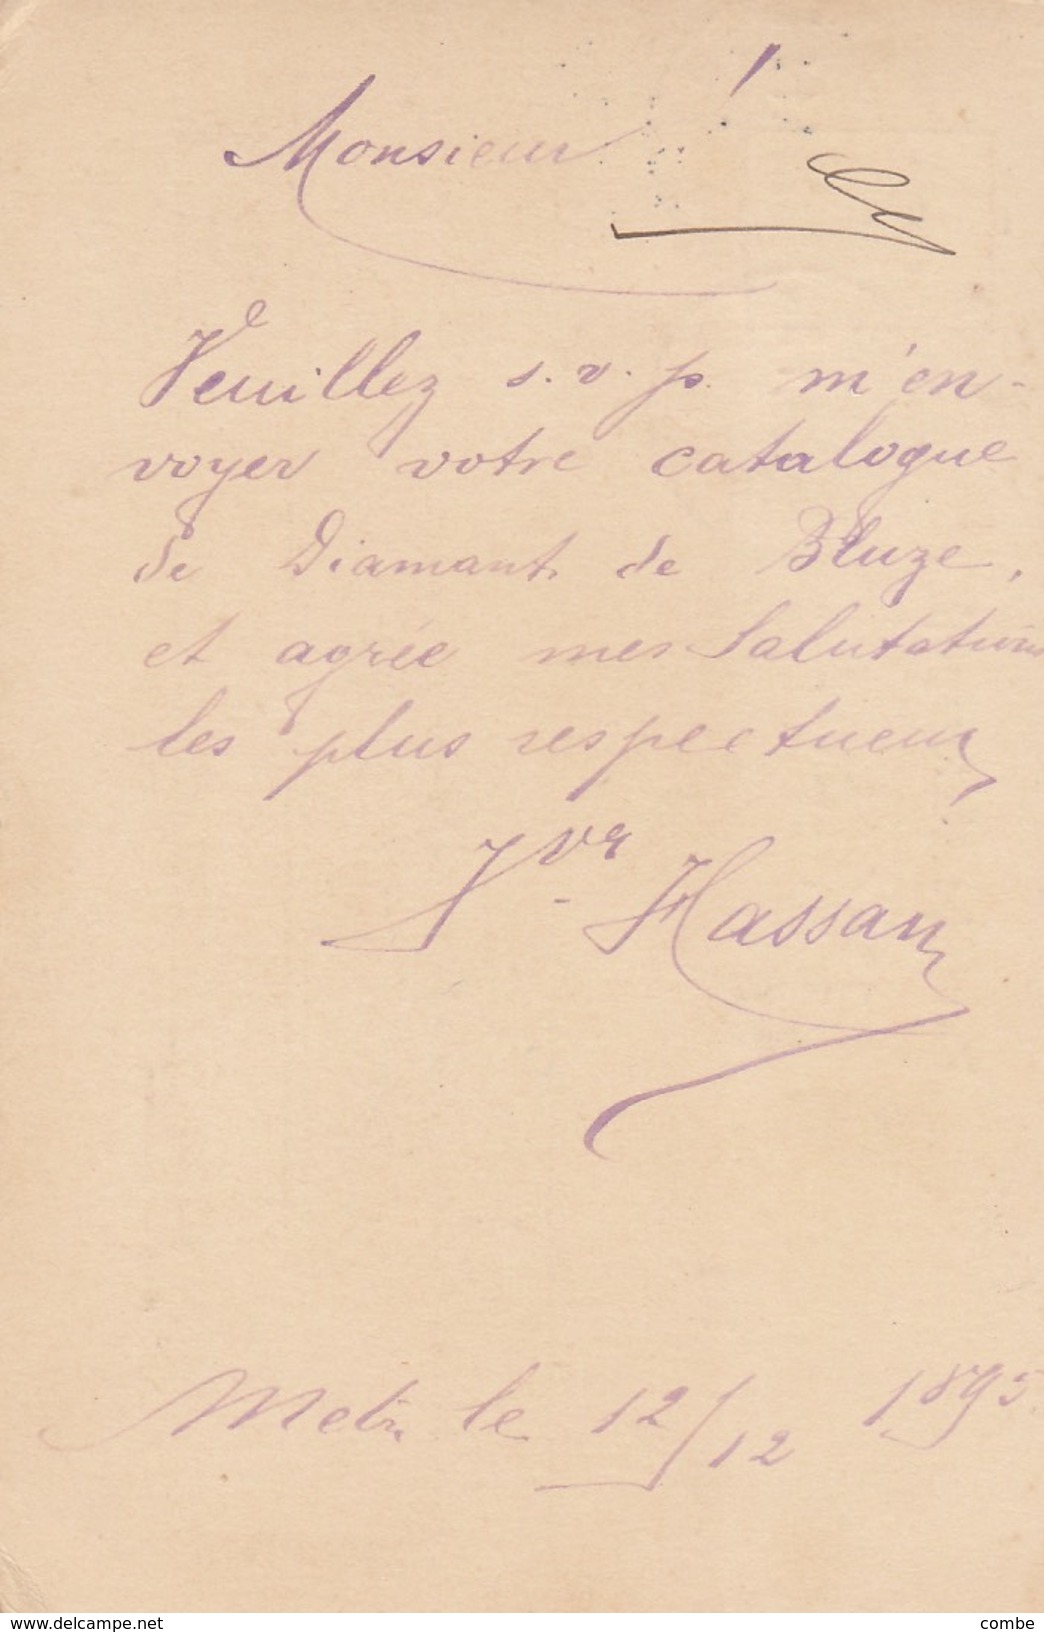 Monsieur !
Veuillez s.v.p. m'en-
voyer votre catalogue
de Diamant de Bluze,
et agrée mes Salutations
les plus respectueux
Hassan
le 12/12 1895
delcampe.net
combe